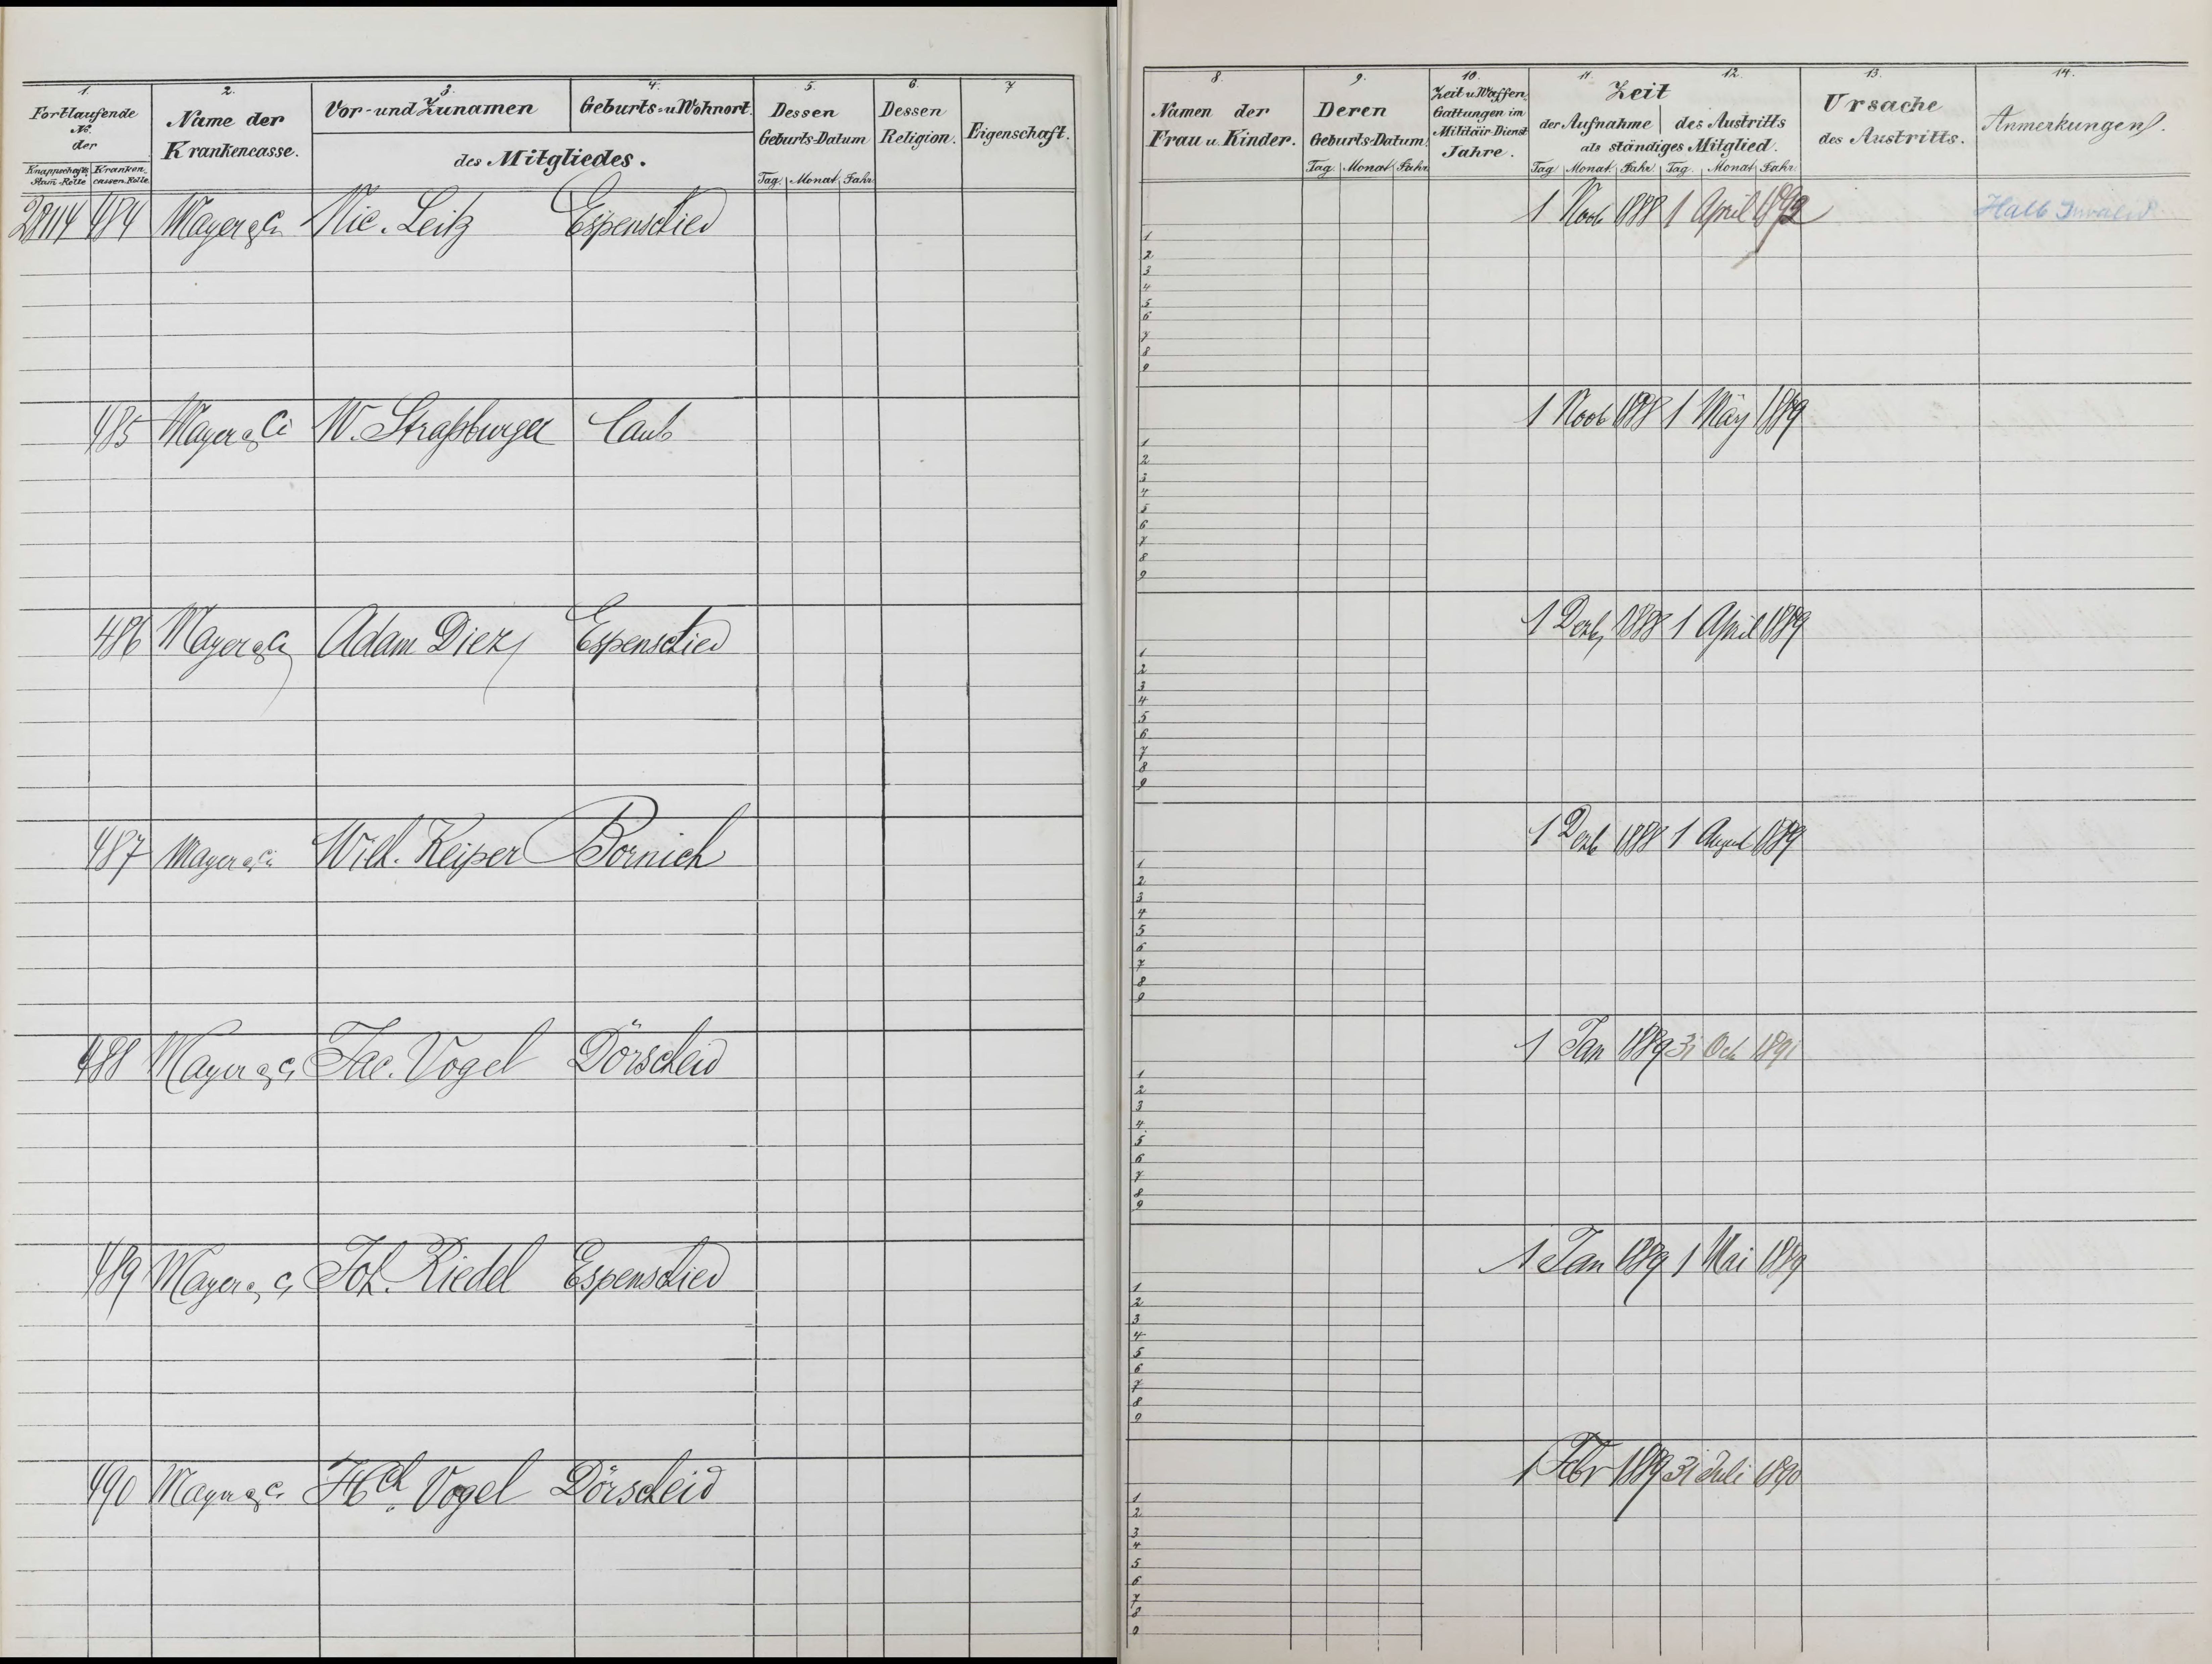 1. 2. 3. 4. 5. 6. 7
Fortlaufende No. der
Knappschafts Stam-Rolle | Krankencassen-Rolle
Name der Krankencasse.
Vor- und Zunamen | Geburts- u. Wohnort.
des Mitgliedes.
Dessen Geburts-Datum
Tag. Monat. Jahr
Dessen Religion.
Eigenschaft.
484 Mayer & Ci Nic. Leitz Espenschied
485 Mayer & Ci W. Straßburger Caub
486 Mayer & Ci Adam Diez Espenschied
487 Mayer & Ci Wilh. Keiper Bornich
488 Mayer & Ci Jac. Vogel Dörscheid
489 Mayer & Ci Joh. Riedel Espenschied
490 Mayer & Ci Hch. Vogel Dörscheid
8. 9. 10. 11. 12. 13. 14.
Namen der Frau u. Kinder.
Deren Geburts-Datum.
Tag. Monat. Jahr
Zeit u. Waffen-Gattungen im Militair-Dienst Jahre.
Zeit
der Aufnahme | des Austritts
als ständiges Mitglied.
Tag. Monat. Jahr. Tag. Monat. Jahr.
Ursache des Austritts.
Anmerkungen.
1 Novb 1888 1 April 1892 Halb Invalid
1
2
3
4
5
6
7
8
9
1 Novb 1888 1 März 1889
1
2
3
4
5
6
7
8
9
1 Dezb 1888 1 April 1889
1
2
3
4
5
6
7
8
9
1 Dezb 1888 1 August 1889
1
2
3
4
5
6
7
8
9
1 Jan 1889 31 Oct 1891
1
2
3
4
5
6
7
8
9
1 Jan 1889 1 Mai 1889
1
2
3
4
5
6
7
8
9
1 Febr 1889 31 Juli 1890
1
2
3
4
5
6
7
8
9